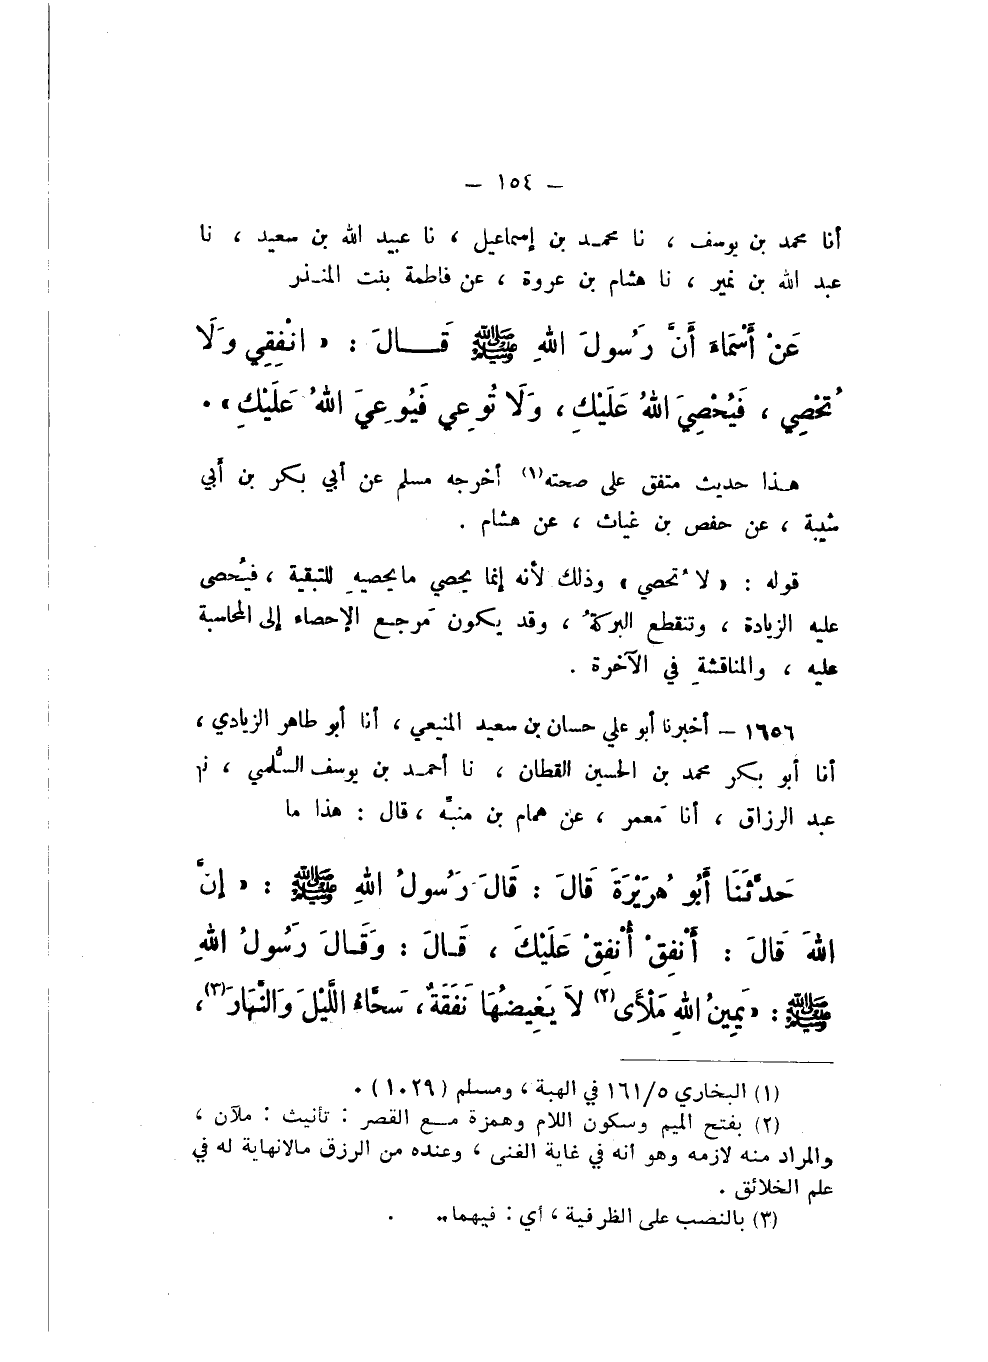 — ١٥٤ —
أنا محمد بن يوسف ، نا محمـد بن إسماعيل ، نا عبيد الله بن سعيد ، نا
عبد الله بن نمير ، نا هشام بن عروة ، عن فاطمة بنت المنـذر
عَنْ أَسْمَاءَ أَنَّ رَسُولَ اللهِ ﷺ قَـــالَ : « انْفِقِي وَلَا
تُحْصِي ، فَيُحْصِيَ اللهُ عَلَيْكِ ، وَلَا تُوعِي فَيُوعِيَ اللهُ عَلَيْكِ » .
هـذا حديث متفق على صحته (١) أخرجه مسلم عن أبي بكر بن أبي
شيبة ، عن حفص بن غياث ، عن هشام .
قوله : « لا تُحصي » وذلك لأنه إنما يحصي ما يحصيهِ للتبقية ، فيُحصى
عليه الزيادة ، وتنقطع البركةُ ، وقد يكون مَرجـع الإحصاء إلى المحاسبة
عليه ، والمناقشةِ في الآخرة .
١٦٥٦ — أخبرنا أبو علي حسان بن سعيد المنيعي ، أنا أبو طاهر الزيادي ،
أنا أبو بكر محمد بن الحسين القطان ، نا أحمـد بن يوسف السُّلمي ، نا
عبد الرزاق ، أنا مَعمر ، عن همام بن منبّه ، قال : هذا ما
حَدَّثَنَا أَبُو هُرَيْرَةَ قَالَ : قَالَ رَسُولُ اللهِ ﷺ : « إنَّ
اللهَ قَالَ : أَنْفِقْ أُنْفِقْ عَلَيْكَ ، قَـالَ : وَقَـالَ رَسُولُ اللهِ
ﷺ : « يَمِينُ اللهِ مَلْأَى (٢) لاَ يَغِيضُهَا نَفَقَةٌ ، سَحَّاءُ اللَّيْلَ وَالنَّهَارَ (٣) ،
(١) البخاري ١٦١/٥ في الهبة ، ومسلم (١٠٢٩) .
(٢) بفتح الميم وسكون اللام وهمزة مـع القصر : تأنيث : ملآن ،
والمراد منه لازمه وهو أنه في غاية الغنى ، وعنده من الرزق مالانهاية له في
علم الخلائق .
(٣) بالنصب على الظرفية ، أي : فيهما ..